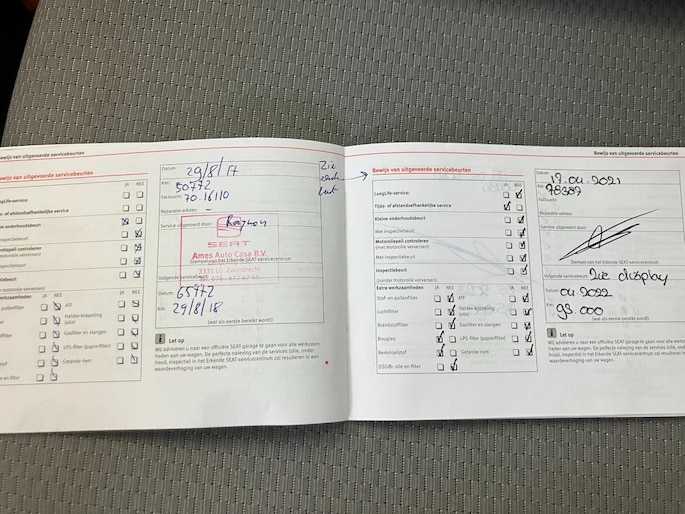 Bewijs van uitgevoerde servicebeurten
servicebeurten
JA NEE
LongLife-service:
- of afstandsafhankelijke service
onderhoudsbeurt
inspectiebeurt
Motoroliepeil controleren
(met motorolie verversen)
inspectiebeurt
(zonder motorolie verversen)
werkzaamheden JA NEE
pollenfilter
ATF
Haldex-koppeling
(olie)
Gasfilter en slangen
LPG-filter (papierfilter)
Getande riem
en filter
Datum
29/8/17
Km:
50772
Factuurnr.
70.16110
Reparatie-advies: –
Service uitgevoerd door:
SEAT
Ames Auto Casa B.V.
3331 LG Zwijndrecht
Stempel van het Erkende SEAT-servicecentrum
Volgende servicebeurt
Datum
65772
Km:
29/8/18
(wat als eerste bereikt wordt!)
i Let op
Wij adviseren u naar een officiële SEAT-garage te gaan voor alle werkzaam
heden aan uw wagen. De perfecte naleving van de services (olie, onder
houd, inspectie) in het Erkende SEAT-servicecentrum zal resulteren in een
waardeverhoging van uw wagen.
Zie
Bewijs van uitgevoerde servicebeurten
Bewijs van uitgevoerde servicebeurten
JA NEE
LongLife-service:
Tijds- of afstandsafhankelijke service
Kleine onderhoudsbeurt
Met inspectiebeurt
Motoroliepeil controleren
(met motorolie verversen)
Met inspectiebeurt
Inspectiebeurt
(zonder motorolie verversen)
Extra werkzaamheden JA NEE
JA NEE
Stof- en pollenfilter
ATF
Luchtfilter
Haldex-koppeling
(olie)
Brandstoffilter
Gasfilter en slangen
Bougies
LPG-filter (papierfilter)
Remvloeistof
Getande riem
DSG®: olie en filter
Datum
19.04.2021
Km:
78387
Factuurnr.
Reparatie-advies:
Service uitgevoerd door:
Stempel van het Erkende SEAT-servicecentrum
Volgende servicebeurt: Zie display
Datum
04.2022
Km:
93.000
(wat als eerste bereikt wordt!)
i Let op
Wij adviseren u naar een officiële SEAT-garage te gaan voor alle werkzaam
heden aan uw wagen. De perfecte naleving van de services (olie, onder
houd, inspectie) in het Erkende SEAT-servicecentrum zal resulteren in een
waardeverhoging van uw wagen.